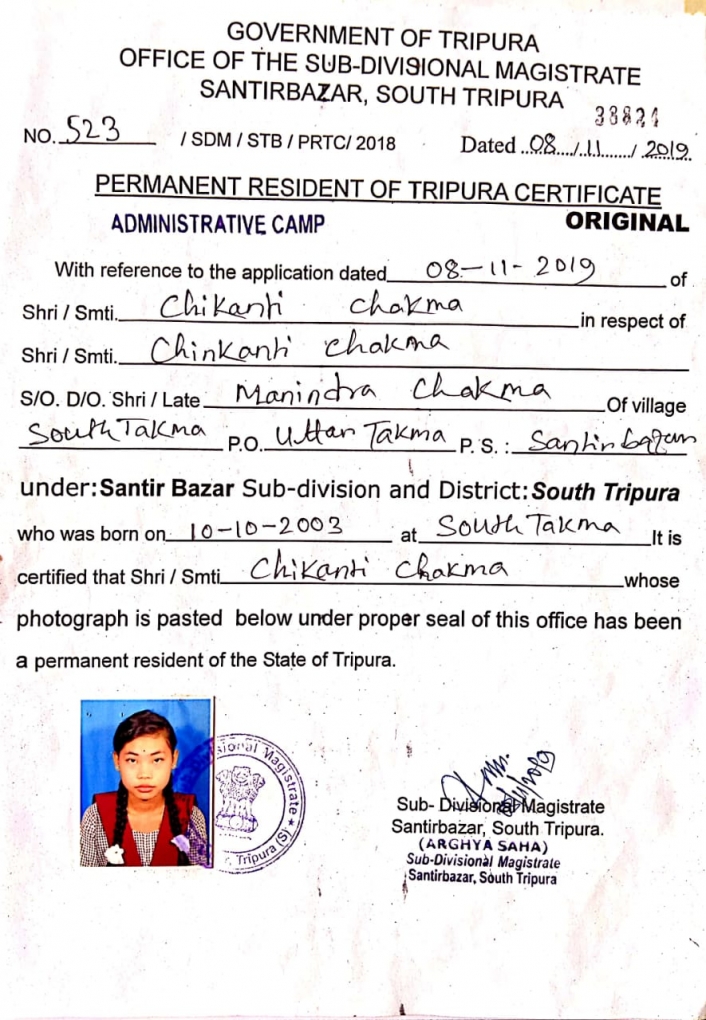 GOVERNMENT OF TRIPURA
OFFICE OF THE SUB-DIVISIONAL MAGISTRATE
SANTIRBAZAR, SOUTH TRIPURA
33824
NO. 523 / SDM / STB / PRTC/ 2018 Dated 08/11/2019
PERMANENT RESIDENT OF TRIPURA CERTIFICATE
ADMINISTRATIVE CAMP ORIGINAL
With reference to the application dated 08-11-2019 of
Shri / Smti. Chikanti Chakma in respect of
Shri / Smti. Chinkanti Chakma
S/O. D/O. Shri / Late Manindra Chakma Of village
South Takma P.O. Uttar Takma P. S. : Santirbazar
under: Santir Bazar Sub-division and District: South Tripura
who was born on 10-10-2003 at South Takma It is
certified that Shri / Smti Chikanti Chakma whose
photograph is pasted below under proper seal of this office has been
a permanent resident of the State of Tripura.
sional Magistrate
Tripura (S)
Sub- Divisional Magistrate
Santirbazar, South Tripura.
(ARGHYA SAHA)
Sub-Divisional Magistrate
Santirbazar, South Tripura